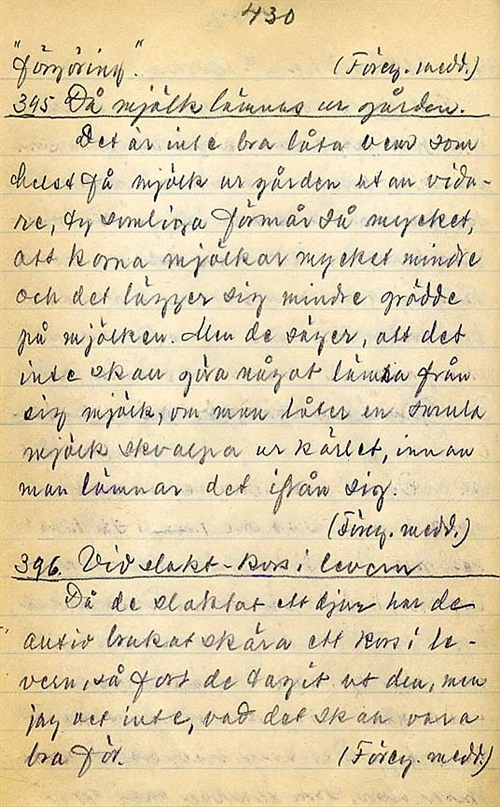 430
"förgöring". (Föreg. medd.)
395 Då mjölk lämnas ur gården.
Det är inte bra låta vem som
helst få mjölk ur gården utan vida-
re, ty somliga förmår så mycket,
att korna mjölkar mycket mindre
och det lägger sig mindre grädde
på mjölken. Men de säger, att det
inte skan göra något lämna från
sig mjölk, om man låter en smula
mjölk skvalpa ur kärlet, innan
man lämnar det ifrån sig.
(Föreg. medd.)
396. Vid slakt - kors i levern
Då de slaktat ett djur har de
antid brukat skära ett kors i le-
vern, så fort de tagit ut den, men
jag vet inte, vad det skan vara
bra för. (Föreg. medd.)